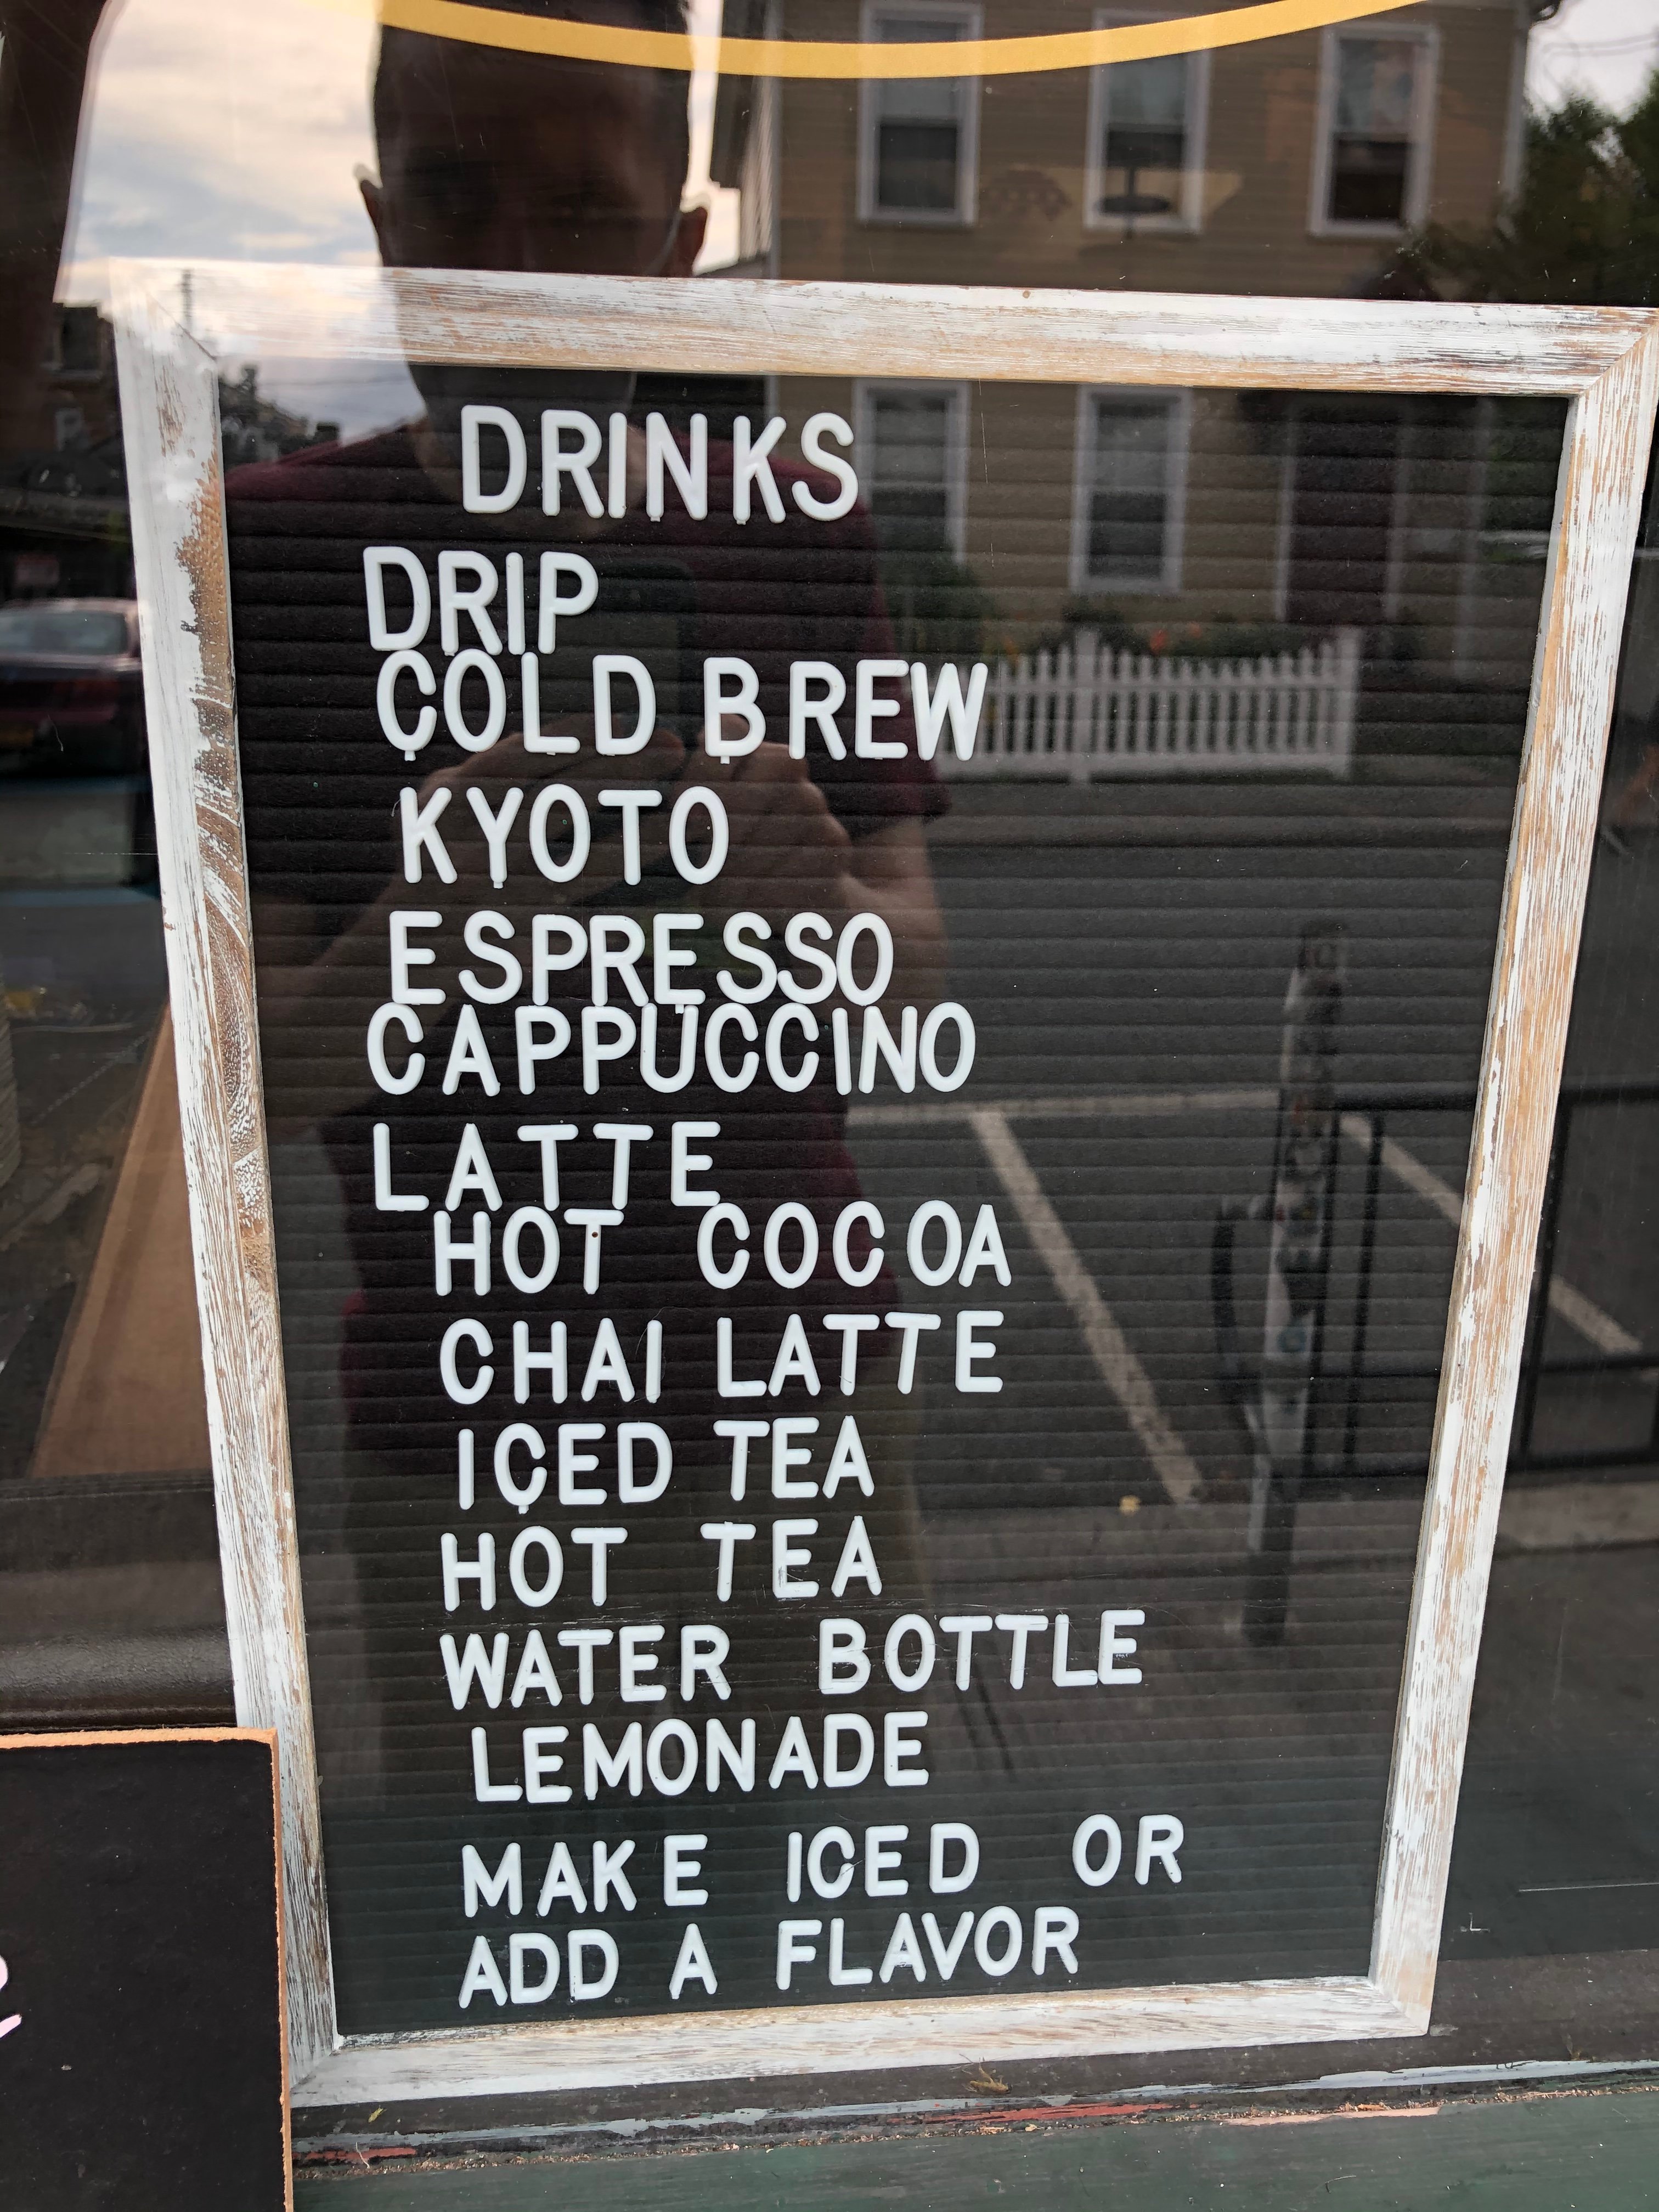 DRINKS
DRIP
COLD BREW
KYOTO
ESPRESSO
CAPPUCCINO
LATTE
HOT COCOA
CHAI LATTE
ICED TEA
HOT TEA
WATER BOTTLE
LEMONADE
MAKE ICED OR
ADD A FLAVOR